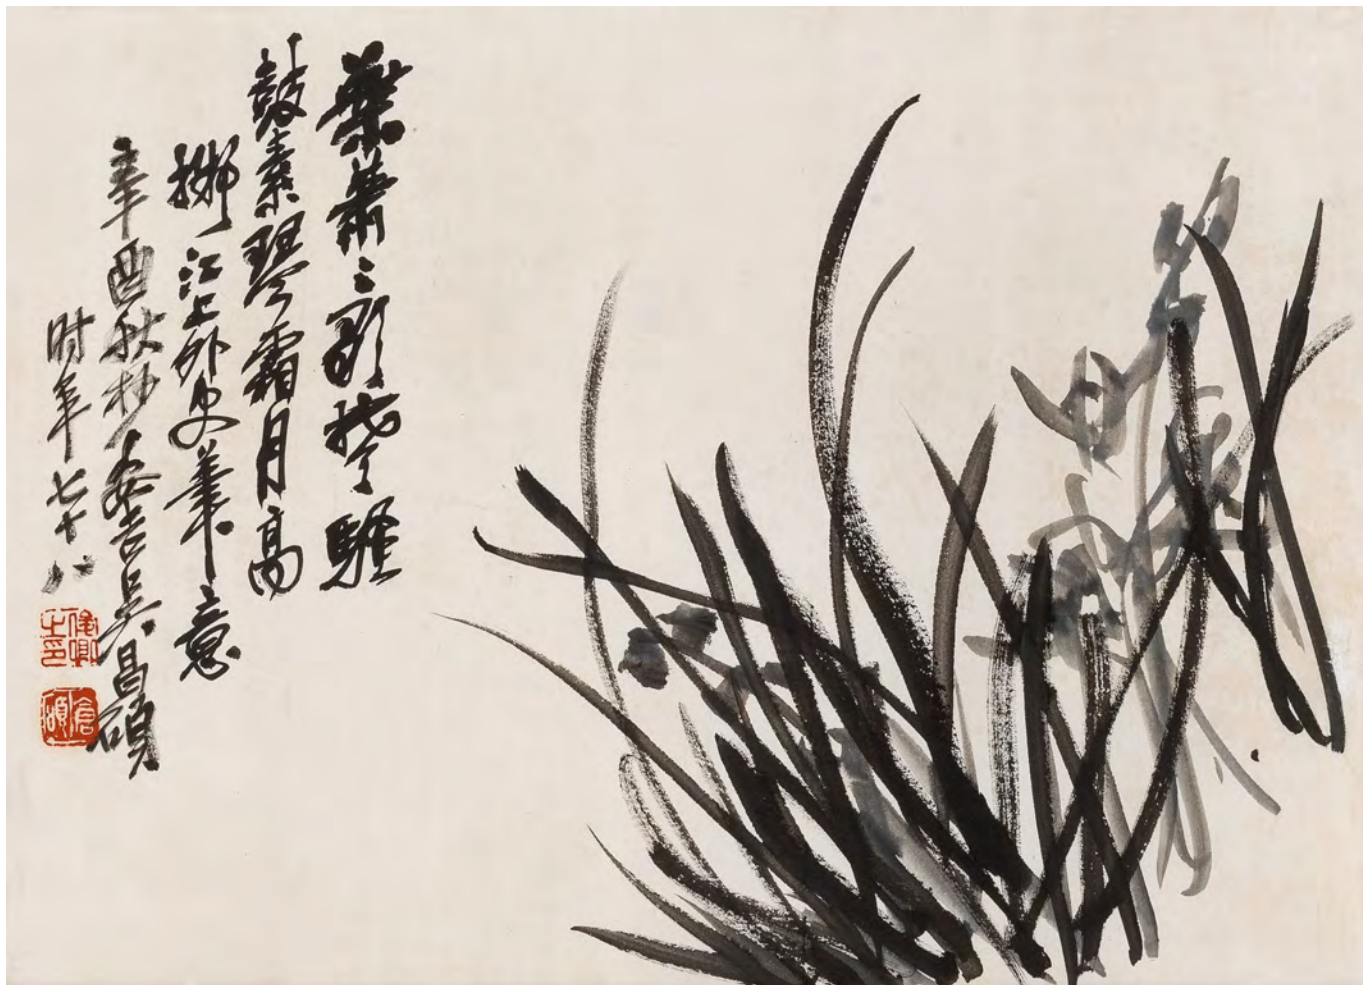 葉蕭〻歌楚騷
鼓素琴霜月高
擬江上外史筆意
辛酉秋杪安吉吳昌碩
时年七十八
俊卿之印
倉碩